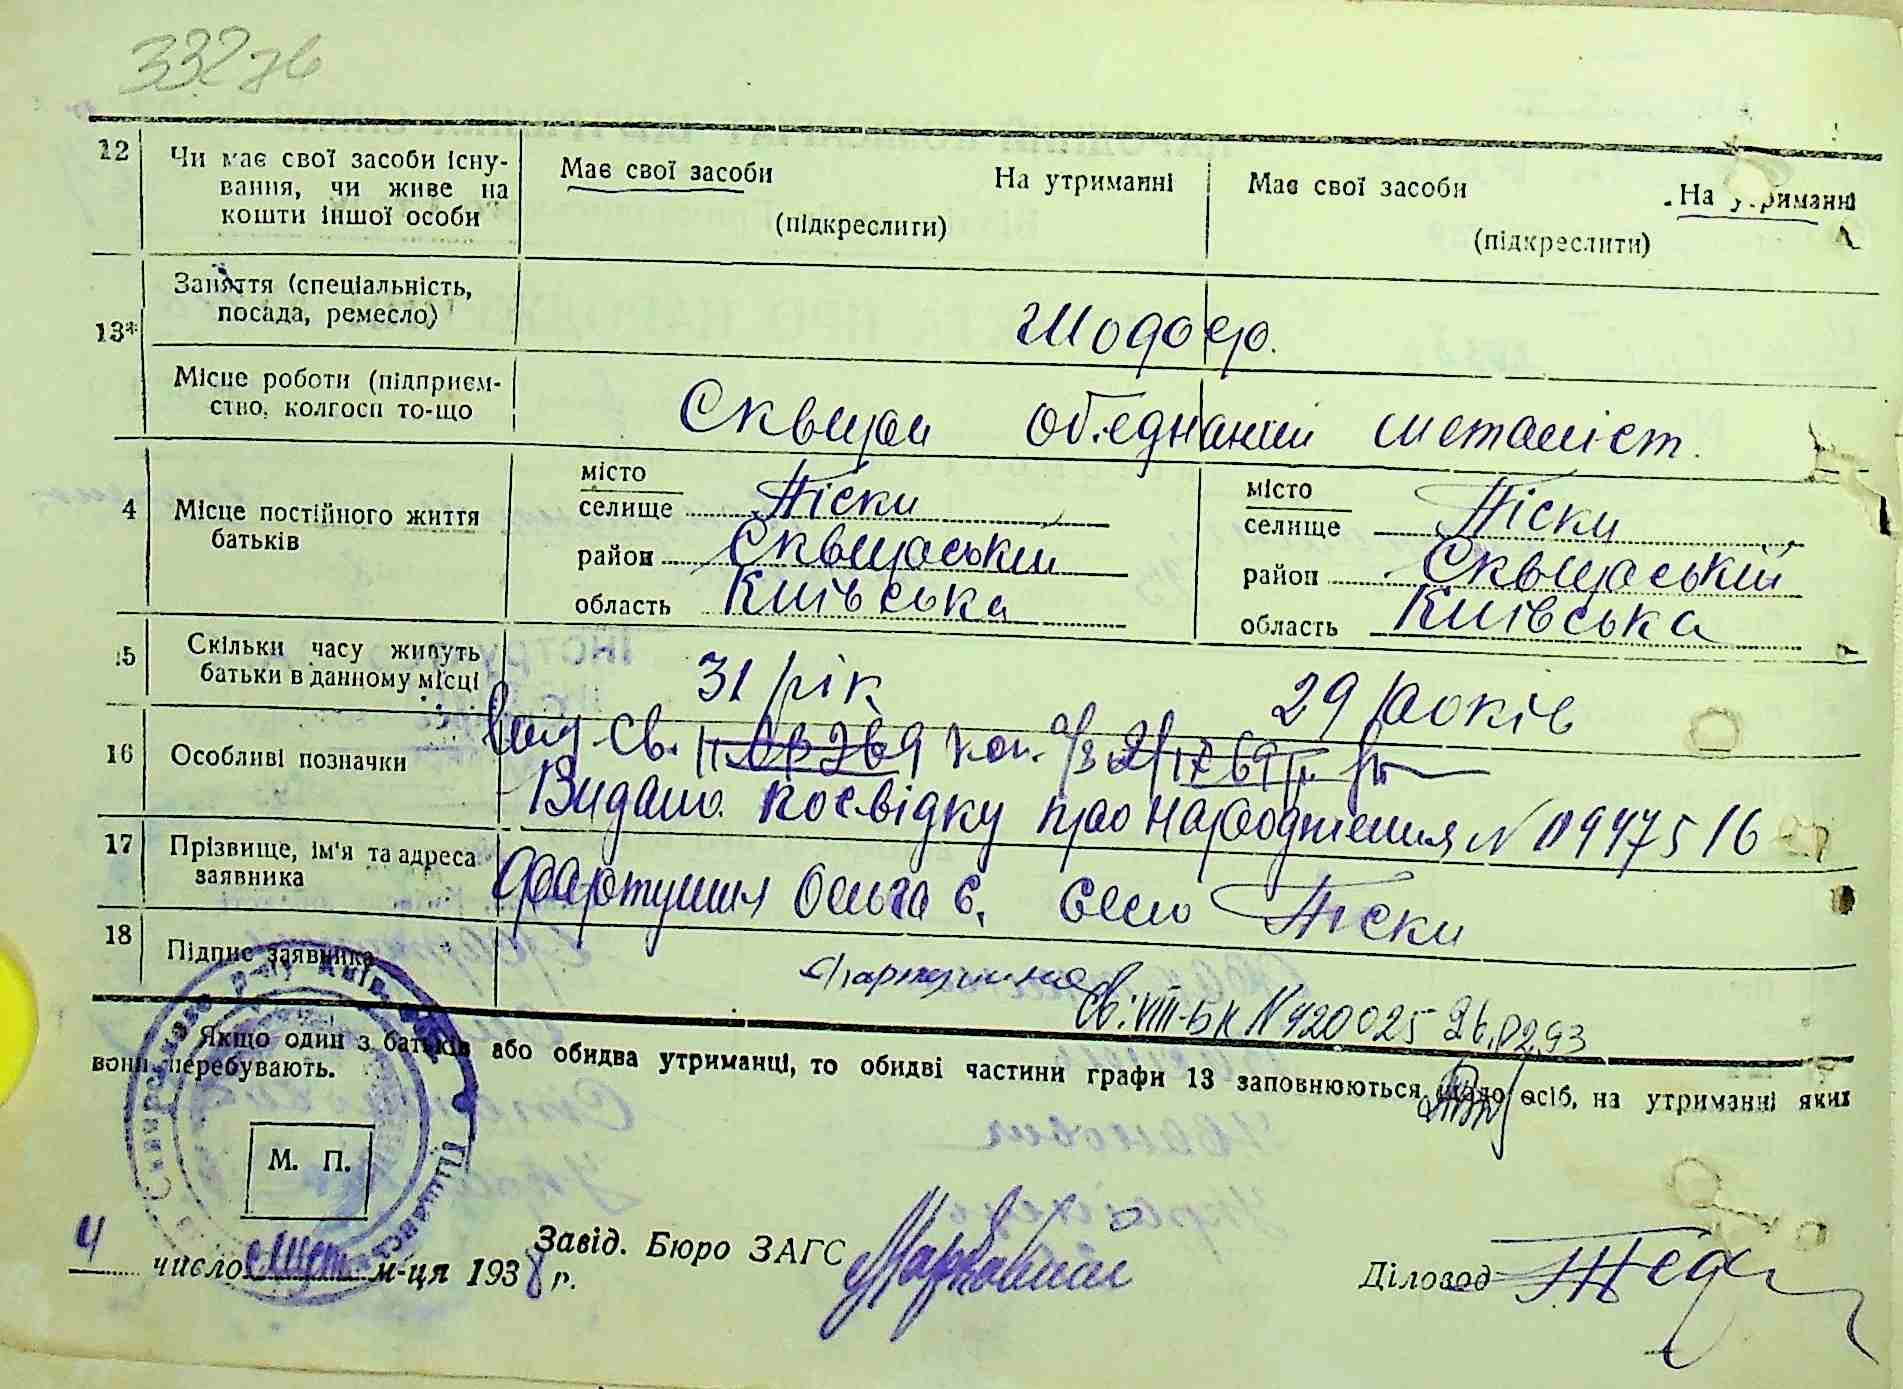 332
12 Чи має свої засоби існу-
вання, чи живе на
кошти іншої особи
Має свої засоби На утриманні
(підкреслити)
Має свої засоби На утриманні
(підкреслити)
13*
Заняття (спеціальність,
посада, ремесло)
Шофер.
Місце роботи (підприєм-
ство, колгосп то-що
Сквирш об'єднаний металіст.
4 Місце постійного життя
батьків
місто
селище Піски
район Сквирський
область Київська
місто
селище Піски
район Сквирський
область Київська
15 Скільки часу живуть
батьки в данному місці
31 рік
29 років
16 Особливі позначки
Св.
Видано посвідку про народження N 0947516
17 Прізвище, ім'я та адреса
заявника
Фартушня Ольга Є. село Піски
18 Підпис заявника
Св: VIII-БК N 420025 26.02.93
Якщо один з батьків або обидва утриманці, то обидві частини графи 13 заповнюються щодо осіб, на утриманні яких
вони перебувають.
М. П.
4 число лист. м-ця 1938 р.
Завід. Бюро ЗАГС
Діловод